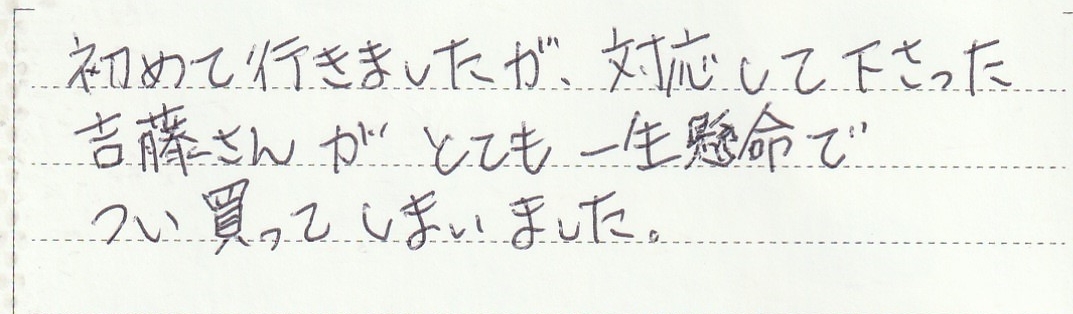 初めて行きましたが、対応して下さった
吉藤さんがとても一生懸命で
つい買ってしまいました。